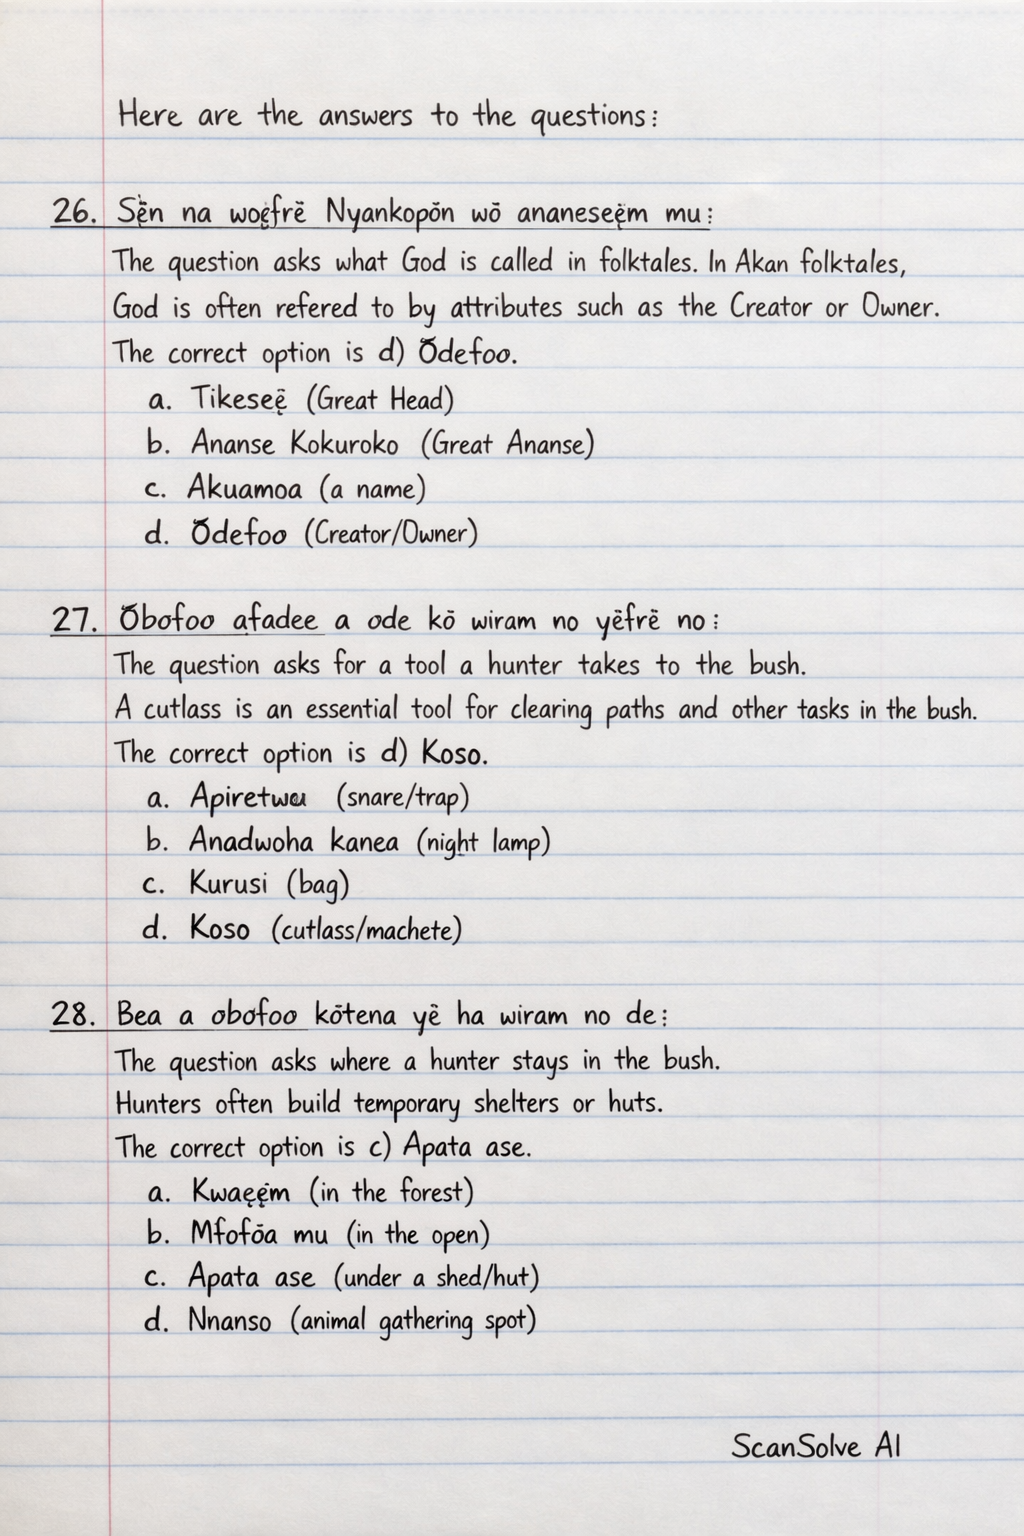 Here are the answers to the questions:
26. Sẹ̈n na woẹfrē Nyankopōn wō ananeseẹ̈m mu:
The question asks what God is called in folktales. In Akan folktales,
God is often refered to by attributes such as the Creator or Owner.
The correct option is d) Ōdefoo.
a. Tikeseẹ̈ (Great Head)
b. Ananse Kokuroko (Great Ananse)
c. Akuamoa (a name)
d. Ōdefoo (Creator/Owner)
27. Ōbofoo afadee a ode kō wiram no yēfrē no:
The question asks for a tool a hunter takes to the bush.
A cutlass is an essential tool for clearing paths and other tasks in the bush.
The correct option is d) Koso.
a. (snare/trap)
b. Anadwoha kanea (night lamp)
c. Kurusi (bag)
d. Koso (cutlass/machete)
28. Bea a obofoo kōtena yē ha wiram no de:
The question asks where a hunter stays in the bush.
Hunters often build temporary shelters or huts.
The correct option is c) Apata ase.
a. Kwaẹẹ̈m (in the forest)
b. Mfofōa mu (in the open)
c. Apata ase (under a shed/hut)
d. Nnanso (animal gathering spot)
ScanSolve AI